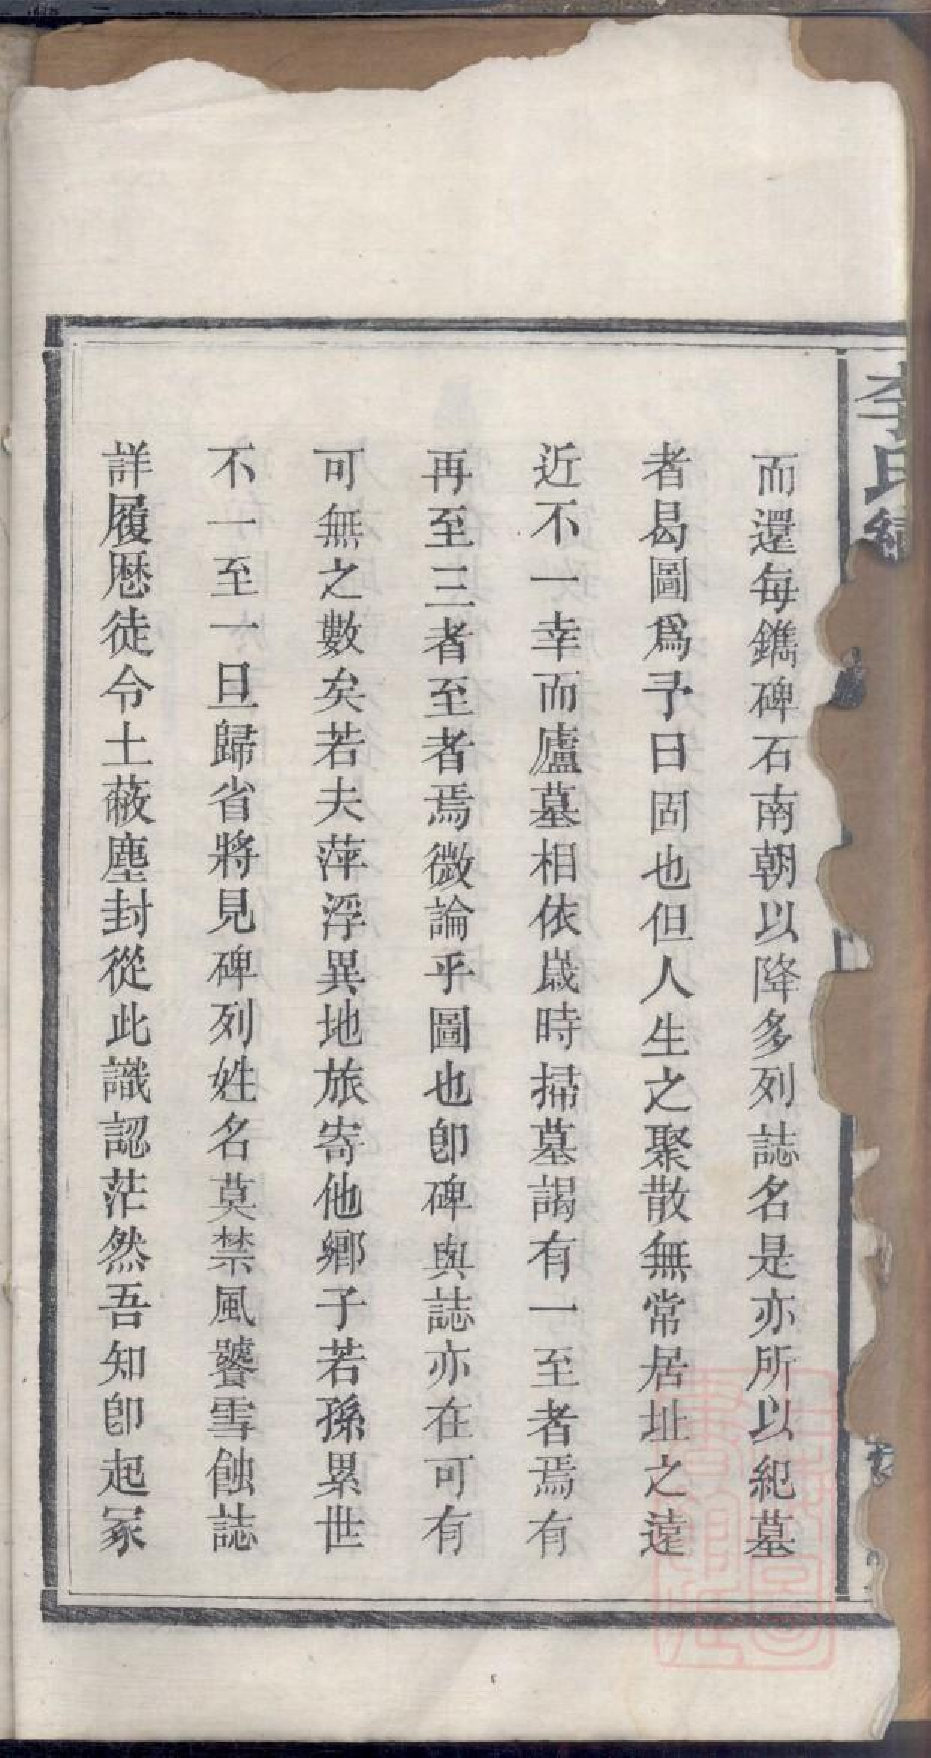 李氏
而還每鐫碑石南朝以降多列誌名是亦所以紀墓
者曷圖爲予曰固也但人生之聚散無常居址之遠
近不一幸而廬墓相依歲時掃墓謁有一至者焉有
再至三者至者焉微論乎圖也卽碑與誌亦在可有
可無之數矣若夫萍浮異地旅寄他鄉子若孫累世
不一至一旦歸省將見碑列姓名莫禁風饕雪蝕誌
詳履歷徒令土蔽塵封從此識認茫然吾知卽起冢